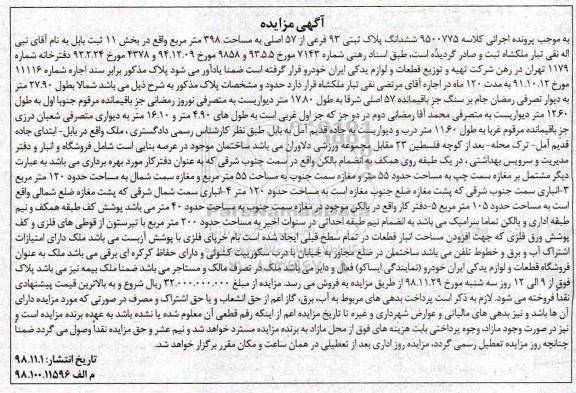 آگهی مزایده
به موجب پرونده اجرائی کلاسه ۹۵۰۰۷۷۵ ششدانگ پلاک ثبتی ۹۳ فرعی از ۵۷ اصلی به مساحت ۳۹۸ متر مربع واقع در بخش ۱۱ ثبت بابل به نام آقای نبی
اله نقی تبار ملکشاه ثبت و صادر گردیده است، طبق اسناد رهنی شماره ۷۱۴۳ مورخ ۹۳.۵.۵ و ۹۸۵۸ مورخ ۹۴.۱۲.۰۹ و ۴۳۷۸ مورخ ۹۲.۲.۲۴ دفترخانه شماره
۱۱۷۹ تهران در رهن شرکت تهیه و توزیع قطعات و لوازم یدکی ایران خودرو قرار گرفته است ضمنا یادآور می شود پلاک مذکور برابر سند اجاره شماره ۱۱۱۱۶
مورخ ۹۱.۱۰.۱۲ به مدت ۱۲۰ ماه در اجاره آقای مرتضی نقی تبار ملکشاه قرار دارد حدود و مشخصات پلاک مذکور به شرح ذیل می باشد شمالا بطول ۲۷.۹۰ متر
به دیوار تصرفی رمضان جام بر سنگ جز باقیمانده ۵۷ اصلی شرقا به طول ۱۷.۸۰ متر دیواریست به متصرفی نوروز رمضانی جز باقیمانده مرقوم جنوبا اول به طول
۱۲.۶۰ متر دیواریست به متصرفی محمد آقا رمضانی دوم در دو جز که جز اول غربی است به طول های ۴.۹۰ متر و ۱۶.۱۰ متر به دیواری متصرفی شعبان درزی
جز باقیمانده مرقوم غربا به طول ۱۱.۶۰ متر درب و دیواریست به جاده قدیم آمل به بابل. طبق نظر کارشناس رسمی دادگستری، ملک واقع در بابل- ابتدای جاده
قدیم آمل- ترک محله- بعد از کوچه فلسطین ۲۳ مقابل مجموعه ورزشی دلاوران می باشد ساختمان موجود در عرصه بنایی است شامل فروشگاه و انبار و دفتر
مدیریت و سرویس بهداشتی، در یک طبقه روی همکف به انضمام بالکن واقع در سمت جنوب شرقی که به عنوان دفترکار مورد بهره برداری می باشد به عبارت
دیگر مشتمل بر مغازه سمت چپ به مساحت حدود ۵۵ متر و مغازه سمت جنوب به مساحت ۵۵ متر مربع و مغازه سمت شمال به مساحت حدود ۱۲۰ متر مربع
۳-انباری سمت جنوب شرقی که پشت مغازه ضلع جنوب مغازه است به مساحت حدود ۱۲۰ متر ۴-انباری سمت شمال شرقی که پشت مغازه ضلع شمالی واقع
است به مساحت حدود ۱۰۵ متر مربع ۵-دفتر کار واقع در بالکن موجود در مغازه سمت جنوب به مساحت حدود ۴۰ متر می باشد پوشش کف طبقه همکف و نیم
طبقه اداری و بالکن تماما سرامیک می باشد به انضمام نیم طبقه احداثی در سنوات اخیر به مساحت حدود ۲۰۰ متر مربع با تیرستون از قوطی های فلزی و کف
پوشش ورق فلزی که جهت افزودن مساحت انبار قطعات در تمام سطح قبلی ایجاد شده است بام خرپای فلزی با پوشش آزبست می باشد ملک دارای امتیازات
اشتراک آب و برق و خطوط تلفن می باشد ساختمان در ضلع مجاور به خیابان با درب سکوریت کشوئی و دارای حفاظ کرکره ای برقی می باشد ملک به عنوان
فروشگاه قطعات و لوازم یدکی ایران خودرو (نمایندگی ایساکو) فعال و دایر می باشد. ملک در تصرف مالک و مستاجر می باشد ضمنا ملک بیمه نیز می باشد پلاک
فوق از ۹ الی ۱۲ روز سه شنبه مورخ ۹۸.۱۱.۲۹ از طریق مزایده به فروش می رسد. مزایده از مبلغ ۳۲.۰۰۰.۰۰۰.۰۰۰ ریال شروع و به بالاترین قیمت پیشنهادی
نقدا فروخته می شود. لازم به ذکر است پرداخت بدهی های مربوط به آب، برق، گاز اعم از حق انشعاب و یا حق اشتراک و مصرف در صورتی که مورد مزایده دارای
آن ها باشد و نیز بدهی های مالیاتی و عوارض شهرداری و غیره تا تاریخ مزایده اعم از اینکه رقم قطعی آن معلوم شده یا نشده باشد به عهده برنده مزایده است و
نیز در صورت وجود مازاد، وجوه پرداختی بابت هزینه های فوق از محل مازاد به برنده مزایده مسترد خواهد شد و نیم عشر و حق مزایده نقداً وصول می گردد ضمناً
چنانچه روز مزایده تعطیل رسمی گردد، مزایده روز اداری بعد از تعطیلی در همان ساعت و مکان مقرر برگزار خواهد شد.
تاریخ انتشار: ۹۸.۱۱.۱
م الف ۹۸.۱۰۰.۱۱۵۹۶